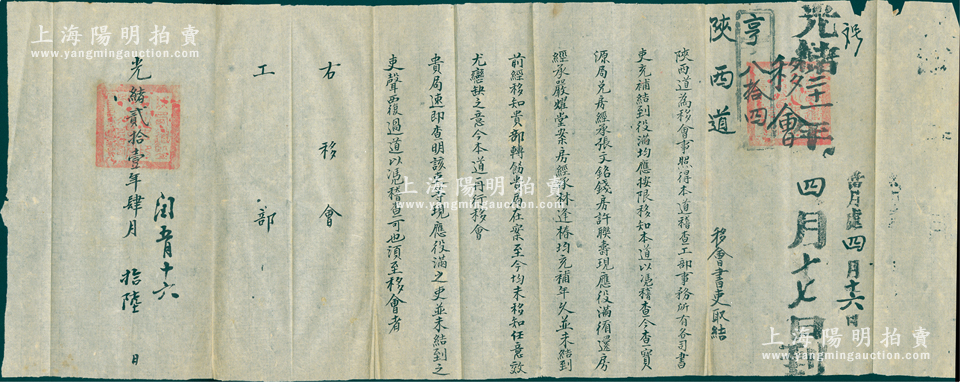 光緒二十一年四月十七日到
移會
當月處四月十六日
亨
八拾四
陝西道
移會書吏取結
陝西道為移會事照得本道稽查工部事務所有各司書
吏充補結到役滿均應按限移知本道以憑稽查今查寶
源局兑房經承張文銘錢房許聯壽現應役滿循還房
經承嚴耀堂案房經承林逢椿均充補年久並未結到
前經移知貴部轉飭貴局在案至今均未移知任意效
尤戀缺之意今本道再行移會
貴局速即查明該吏等現應役滿之吏並未結到之
吏聲覆過道以憑稽查可也須至移會者
右移會
工部
光緒貳拾壹年肆月拾陸日
閏五月十六
上海陽明拍賣
www.yangmingauction.com
上海陽明拍賣
www.yangmingauction.com
上海陽明拍賣
www.yangmingauction.com
上海陽明拍賣
www.yangmingauction.com
上海陽明拍賣
www.yangmingauction.com
上海陽明拍賣
www.yangmingauction.com